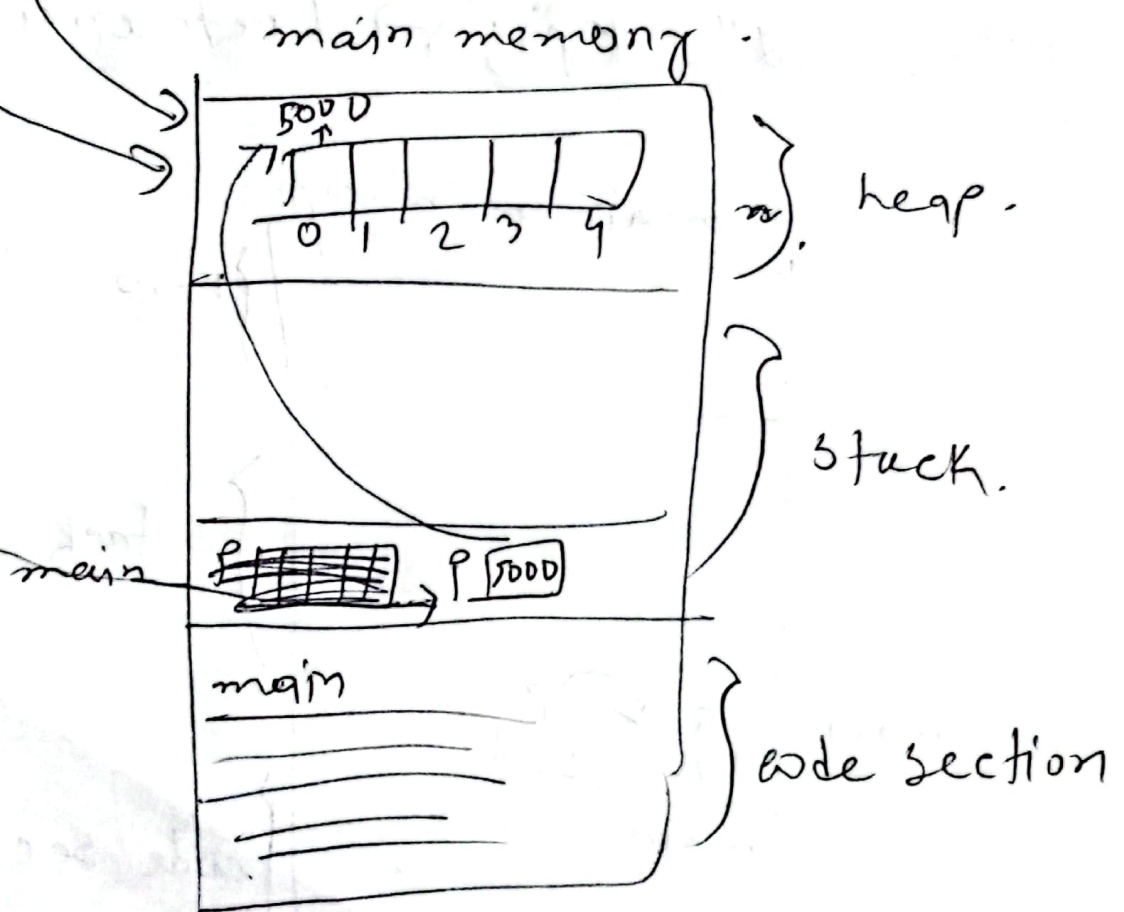 main memory.
5000
0 1 2 3 4
heap.
stack.
main P P 5000
main
code section